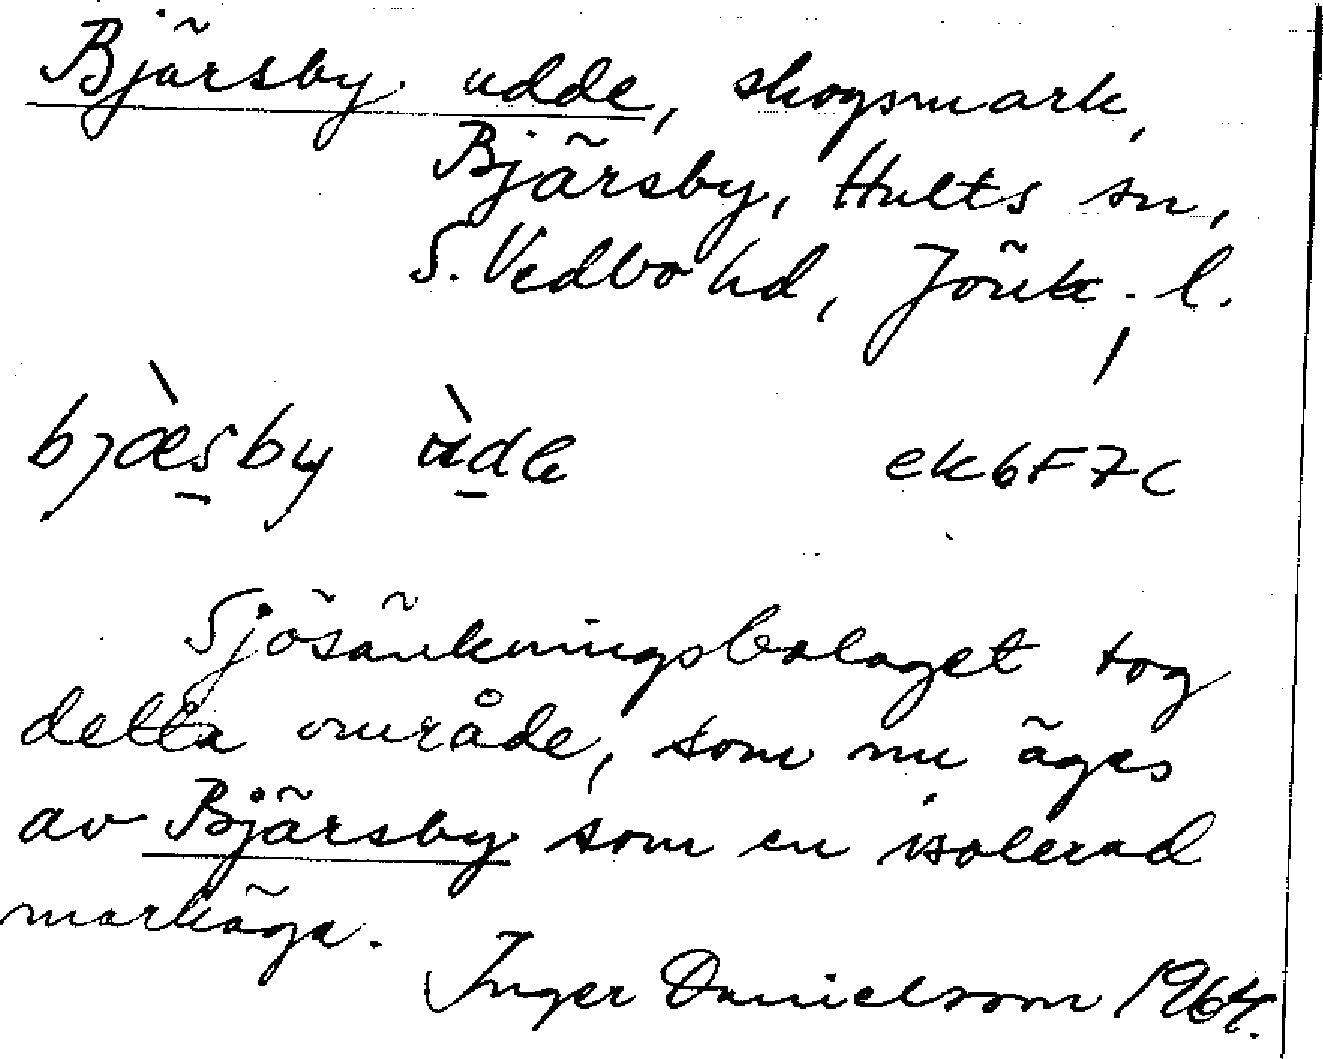 Bjärsby udde, skogsmark,
Bjärsby, Hults sn,
S. Vedbo hd, Jönk. l.
bjæ̀s̱by ùḏe ek6F7c
Sjösänkningsbolaget tog
detta område, som nu äges
av Bjärsby som en isolerad
markäga.
Inger Danielsson 1964.